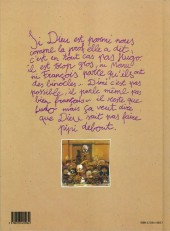 Si Dieu est parmi nous
comme la prof elle a dit,
c'est en tout cas pas Hugo:
il est trop gros, ni Marc
ni François parce qu'ils ont
des binocles - Dimi c'est pas
possible il parle même pas
bien français - il reste que
Ludo mais ça veut dire
que Dieu sait pas faire
pipi debout.